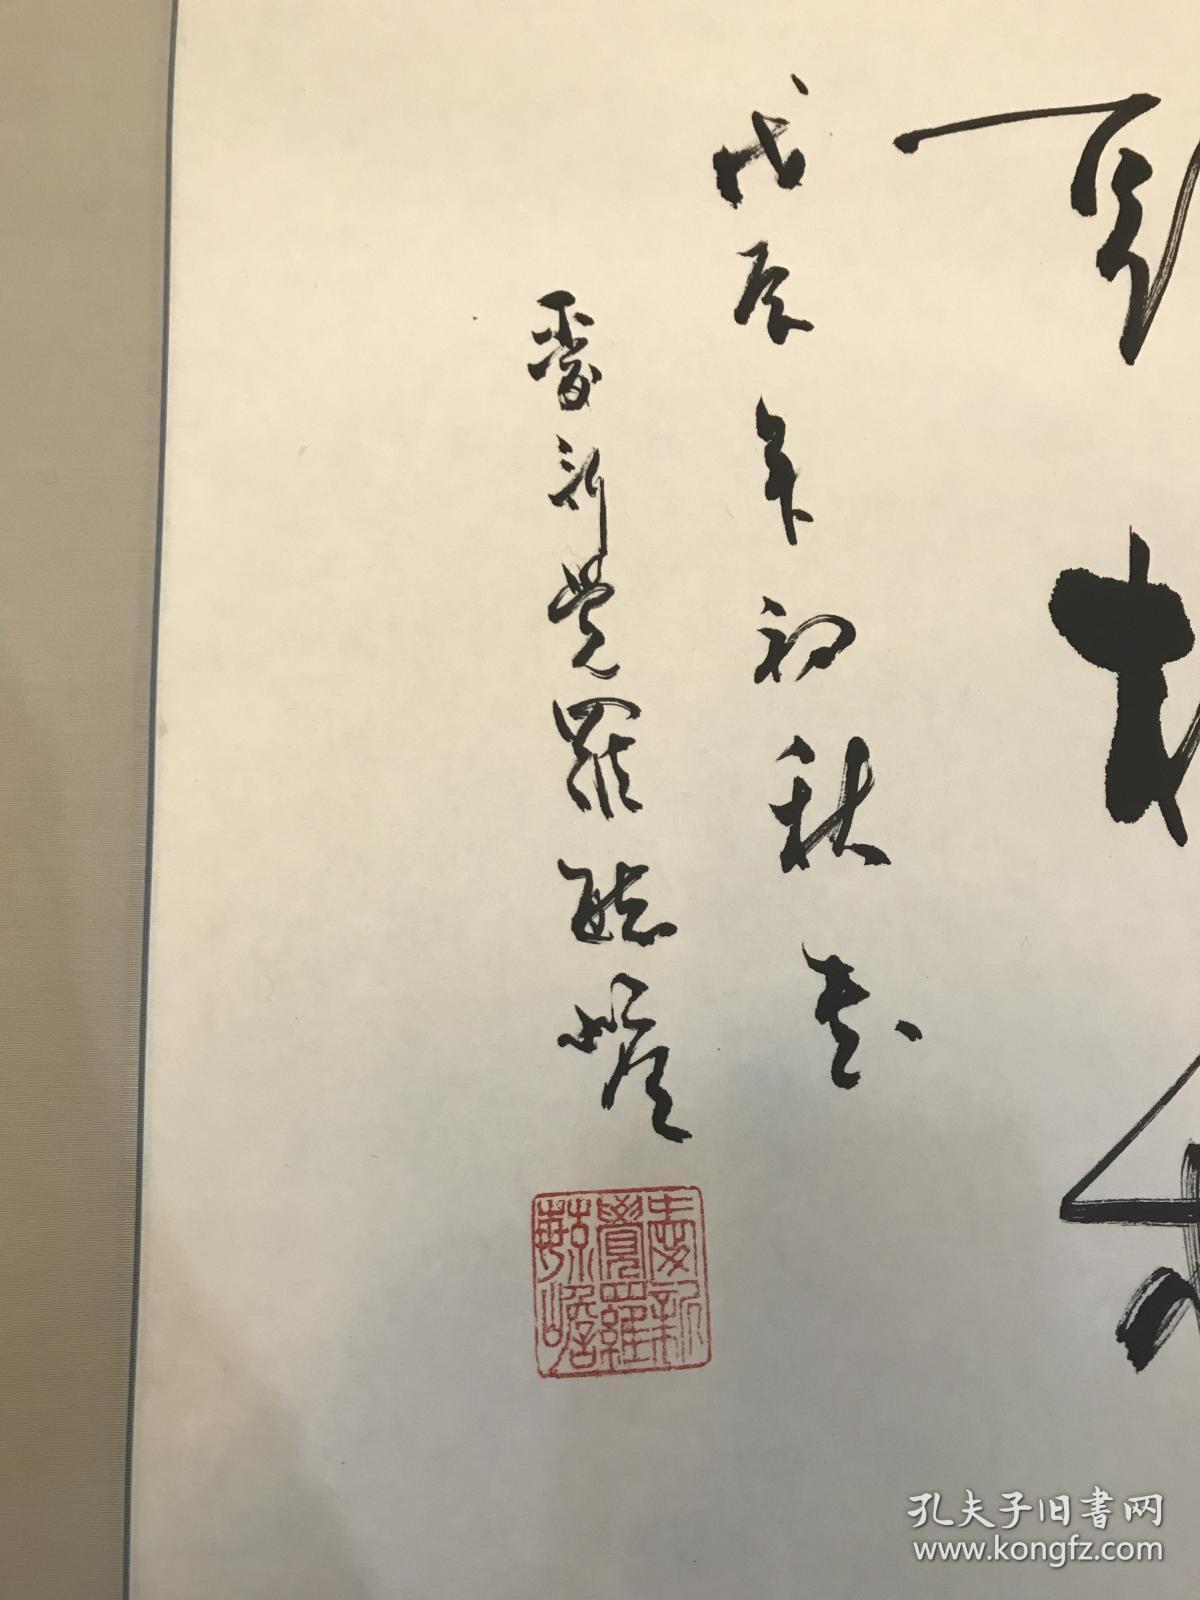 戊辰年初秋书
爱新觉罗毓嶦
愛新覺羅毓嶦
孔夫子旧书网
www.kongfz.com